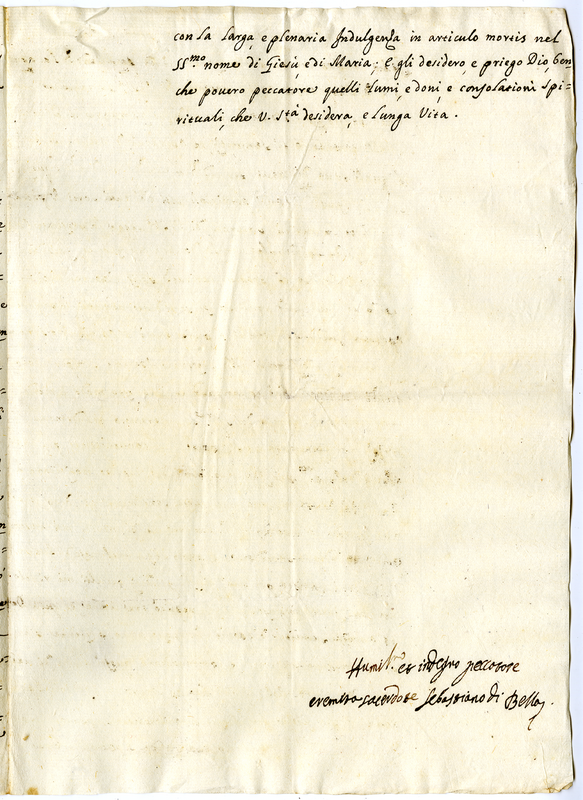 con la larga, e plenaria Indulgenza in articulo mortis nel
SS.mo nome di Giesù, e di Maria; e gli desidero, e priego Dio, ben
che povero peccatore quelli lumi, e doni, e consolationi spi=
rituali, che V. S.tà desidera, e lunga vita.
Humil.o et indegno peccatore
eremita sacerdote Sebastiano di Bella